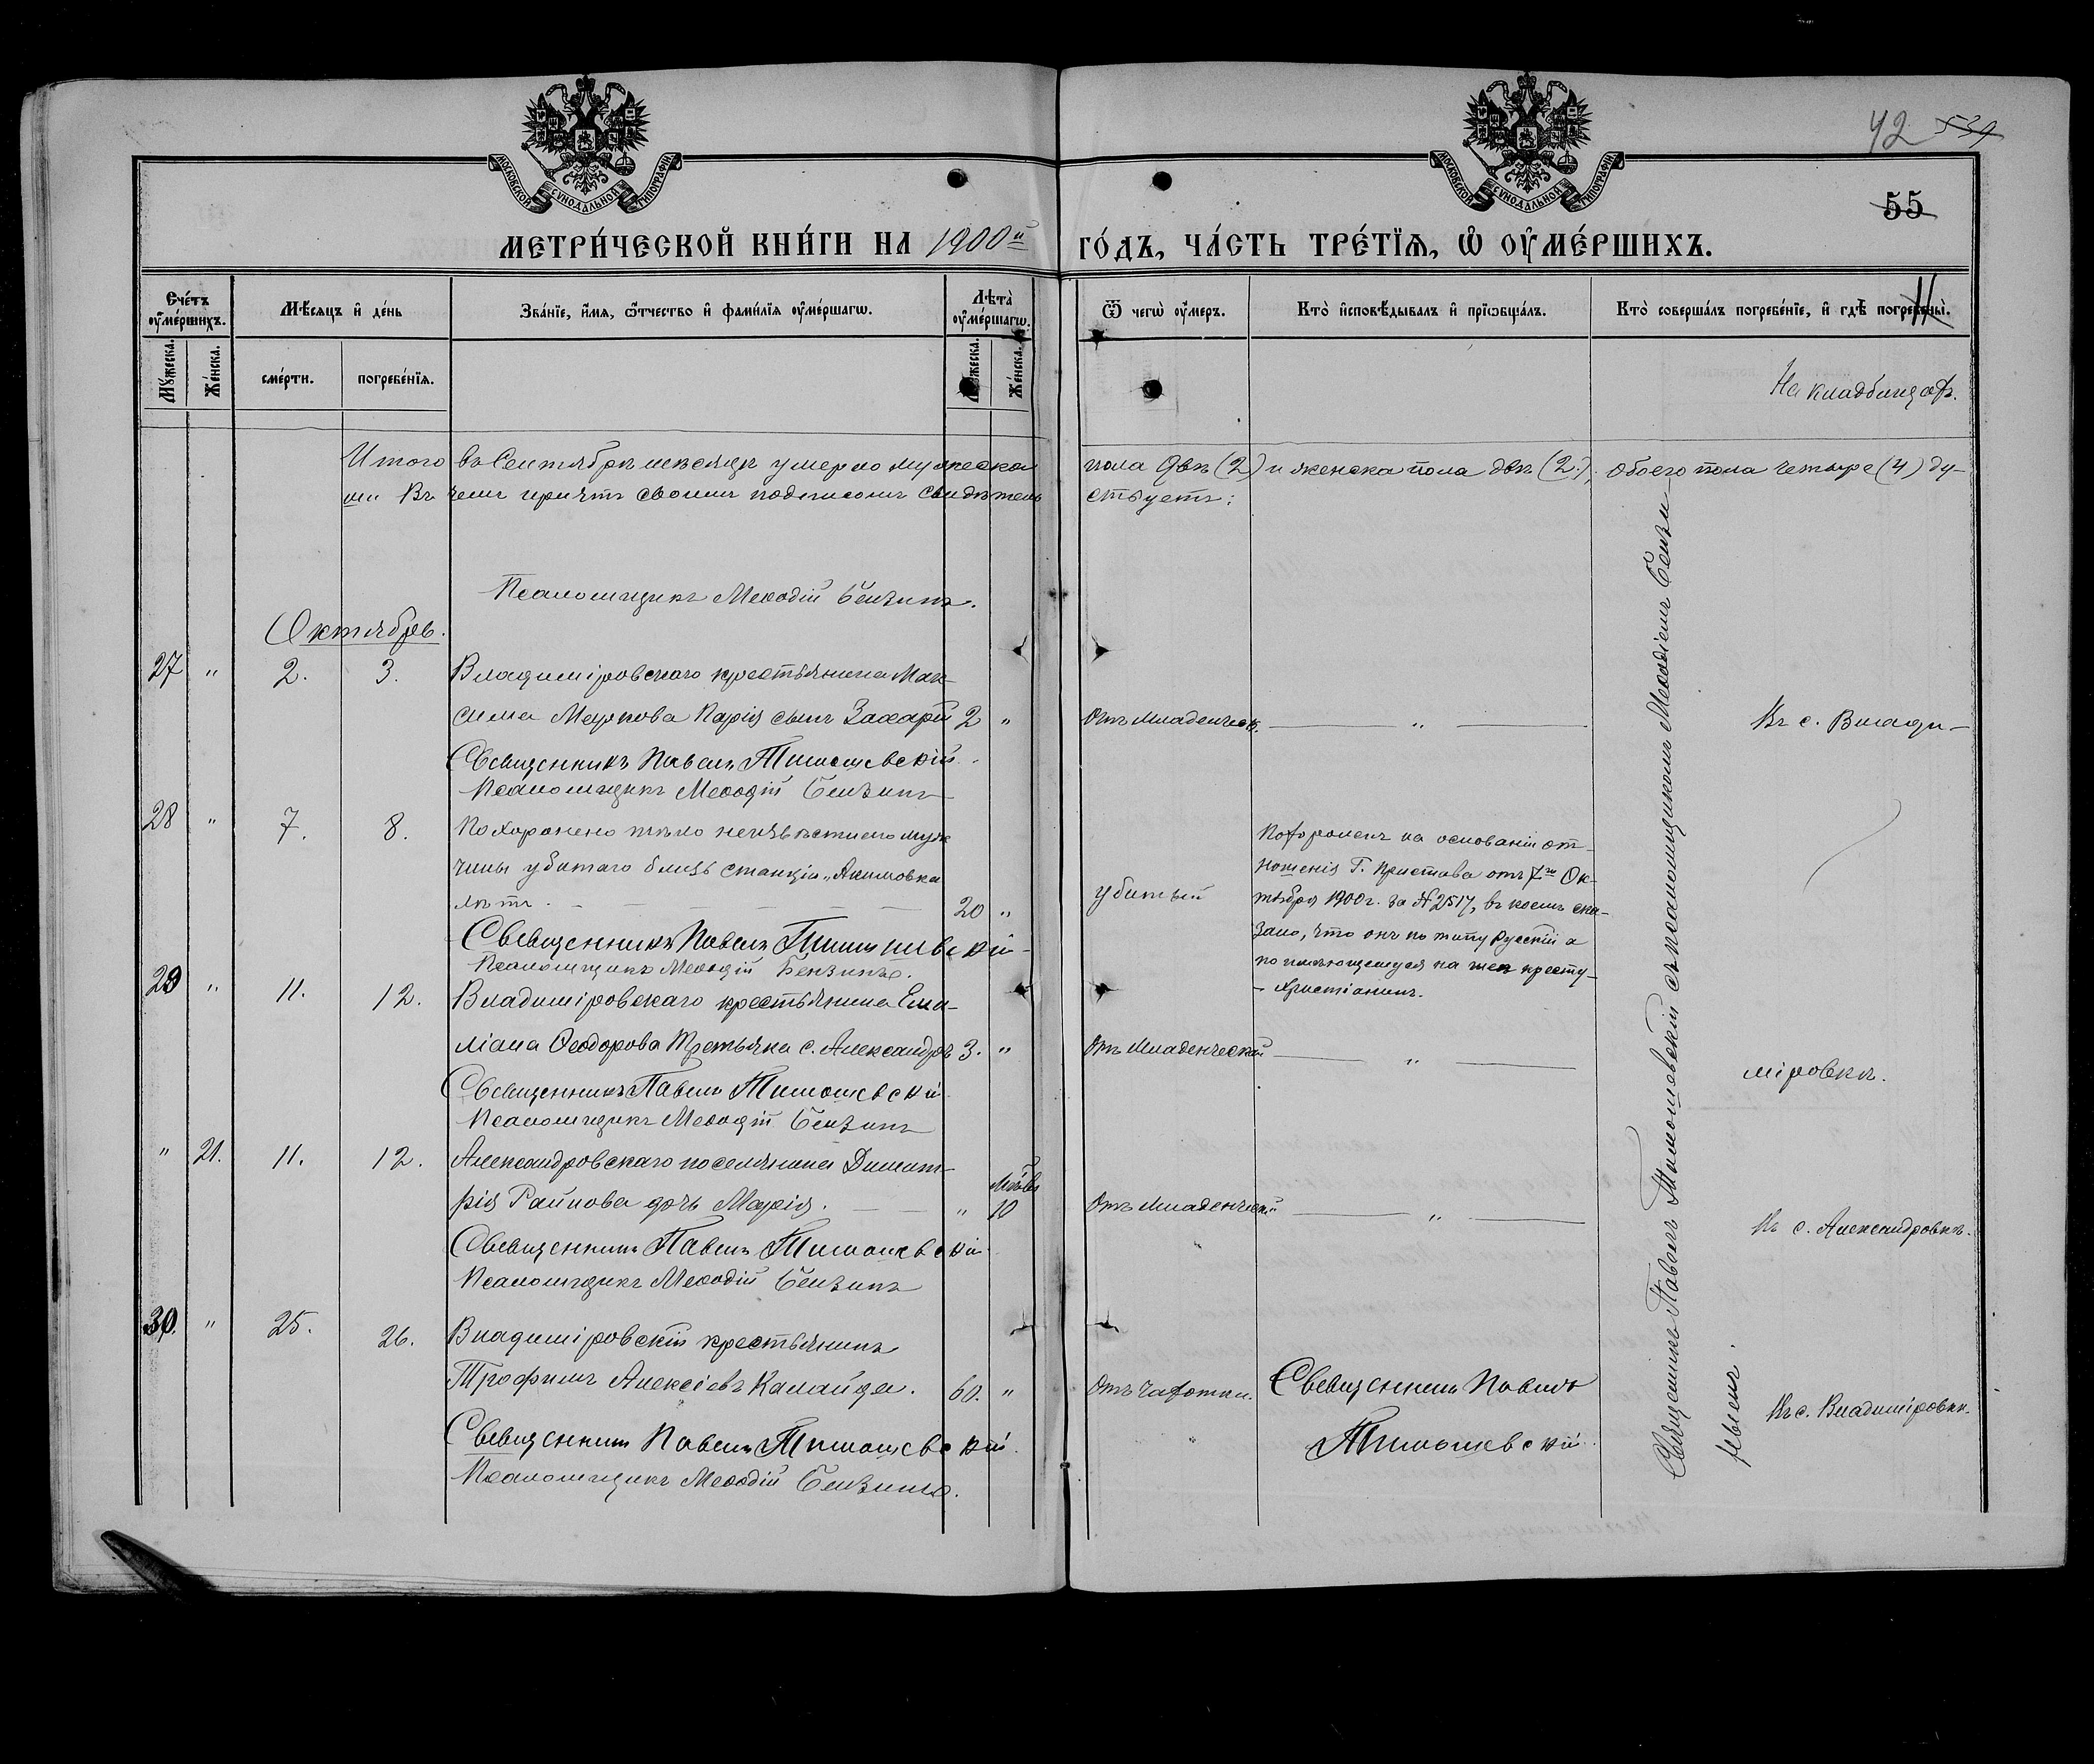 42 539
55
МОСКОВСКОЙ СѴНОДАЛЬНОЙ ТИПОГРАФІИ
МОСКОВСКОЙ СѴНОДАЛЬНОЙ ТИПОГРАФІИ
МЕТРИ́ЧЕСКОЙ КНИ́ГИ НА 1900й ГО́ДЪ, ЧА́СТЬ ТРЕ́ТЇѦ, Ѡ҆ ОУ҆МЕ́РШИХЪ.
Сче́тъ оу҆ме́ршихъ.
Мѣ́сяцъ и҆ де́нь
Зва́нїе, и҆́мя, ѻ҆́тчество и҆ фами́лїя оу҆ме́ршагѡ.
Лѣта̀ оу҆ме́ршагѡ.
Ѿ чегѡ̀ оу҆́меръ.
Кто̀ и҆сповѣ́дывалъ и҆ прїѡбща́лъ.
Кто̀ соверша́лъ погребе́нїе, и҆ гдѣ̀ погребены̀.
Мꙋ́жеска.
Же́нска.
сме́рти.
погребе́нїя.
Мꙋ́жеска.
Же́нска.
11
На кладбищахъ.
Итого въ Сентябрѣ мѣсяцѣ умерло мужеска пола два (2) и женска пола двѣ (2), обоего пола четыре (4) ду-
ши Въ чемъ причтъ своимъ подписомъ свидѣтель ствуетъ:
Псаломщикъ Меѳодій Бензинъ.
Октябрь.
27 " 2. 3. Владиміровскаго крестьянина Мак-
сима Маркова сынъ Захарій 2 " Отъ младенческ. " Въ с. Влади-
Священникъ Павелъ Тимошевскій
Псаломщикъ Меѳодій Бензинъ
28 " 7. 8. Похоронено тѣло неизвѣстнаго муж
чины убитаго близь станціи „Акимовка
лѣтъ. 20 " убитый
Похороненъ на основаніи от-
ношенія Г. Пристава отъ 7го Ок-
тября 1900 г. за № 2517, въ коемъ ска-
зано, что онъ по типу русскій а
по имѣющемуся на шеѣ кресту-
- христіанинъ.
Священникъ Павелъ Тимошевскій
Псаломщикъ Меѳодій Бензинъ.
29 " 11. 12. Владиміровскаго крестьянина Еми-
ліана Ѳеодорова Третьяка с. Александръ 3. " Отъ Младенческой " міровкѣ.
Священникъ Павелъ Тимошевскій
Псаломщикъ Меѳодій Бензинъ
" 21. 11. 12. Александровскаго поселянина Димит-
рія Райнова дочь Марія. " 10 Отъ Младенческой " Въ с. Александровкѣ.
Священникъ Павелъ Тимошевскій
Псаломщикъ Меѳодій Бензинъ
30. " 25. 26. Владиміровскій крестьянинъ
Трофимъ Алексіевъ Калайда. 60. " Отъ чахотки. Священникъ Павелъ Въ с. Владиміровкѣ.
Тимошевскій.
Священникъ Павелъ Тимошевскій.
Псаломщикъ Меѳодій Бензинъ.
Священникъ Павелъ Тимошевскій съ псаломщикомъ Меѳодіемъ Бензи-